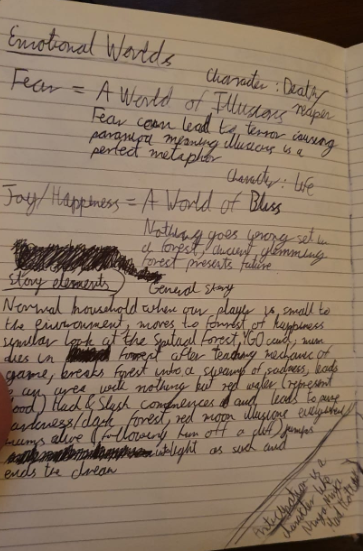 Emotional Worlds
Character: Death/
reaper
Fear = A World of Illusions
Fear can lead to terror causing
paranoid meaning illusions is a
perfect metaphor
Character: Life
Joy/Happiness = A World of Bliss
Nothing goes wrong set in
a forest,
forest presents future
Story elements
General story
Normal household when our player is small to
the environment, moves to forest of happiness
similar look at the forest, mum
dies in forest after teaching mechanic of
game, breaks forest into a swamp of sadness, leads
to an area well nothing but red water (represent
blood) Hack & Slash commences and leads to pure
darkness/dark forest, red moon illusions
mums alive (following him off a jumps
light as such and
ends the dream
is a
character like